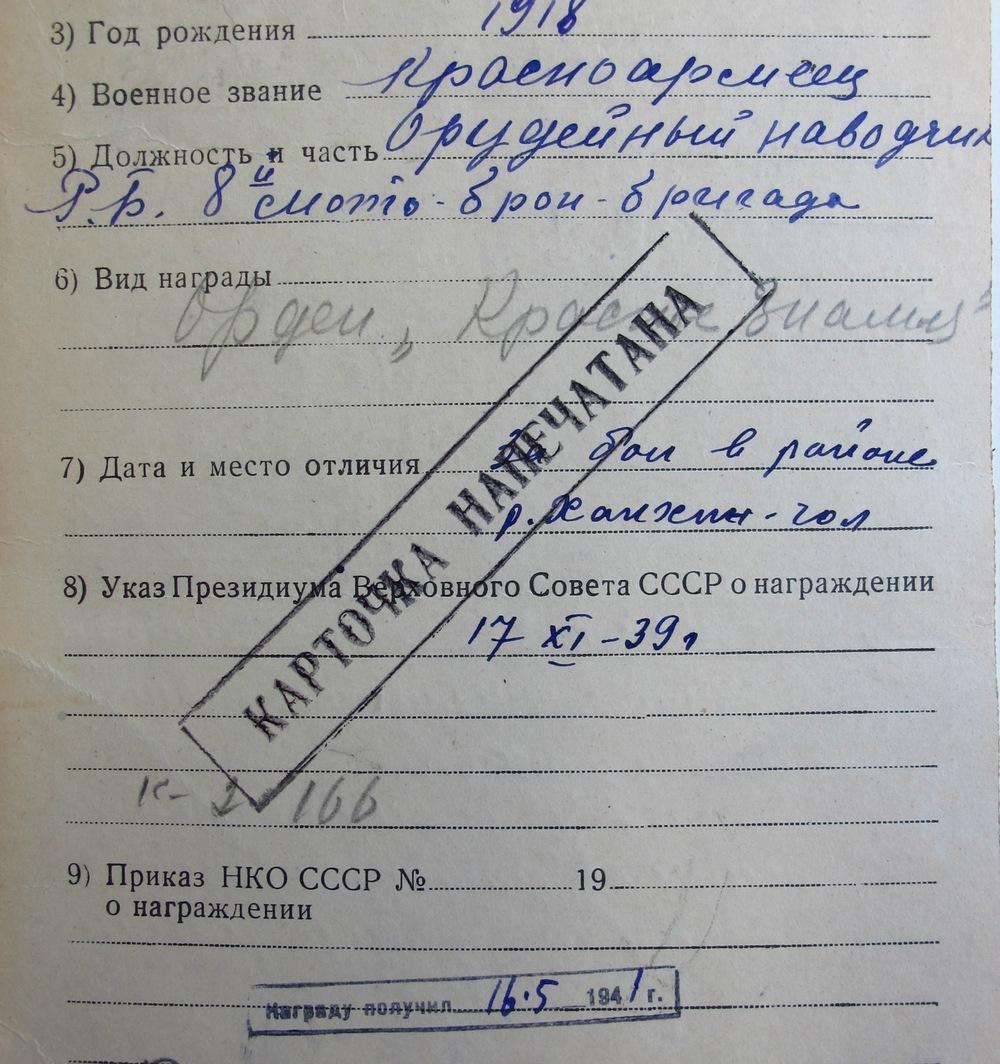 3) Год рождения 1918
4) Военное звание Красноармеец
5) Должность и часть Орудейный наводчик
Р.Б. 8й мото-брон-бригада
6) Вид награды
Орден „Красное Знамя"
7) Дата и место отличия За бои в районе
р. Халхин-гол
8) Указ Президиума Верховного Совета СССР о награждении
17 XI-39г
КАРТОЧКА НАПЕЧАТАНА
К- 2 166
9) Приказ НКО СССР № 19
о награждении
Награду получил 16.5 1941 г.